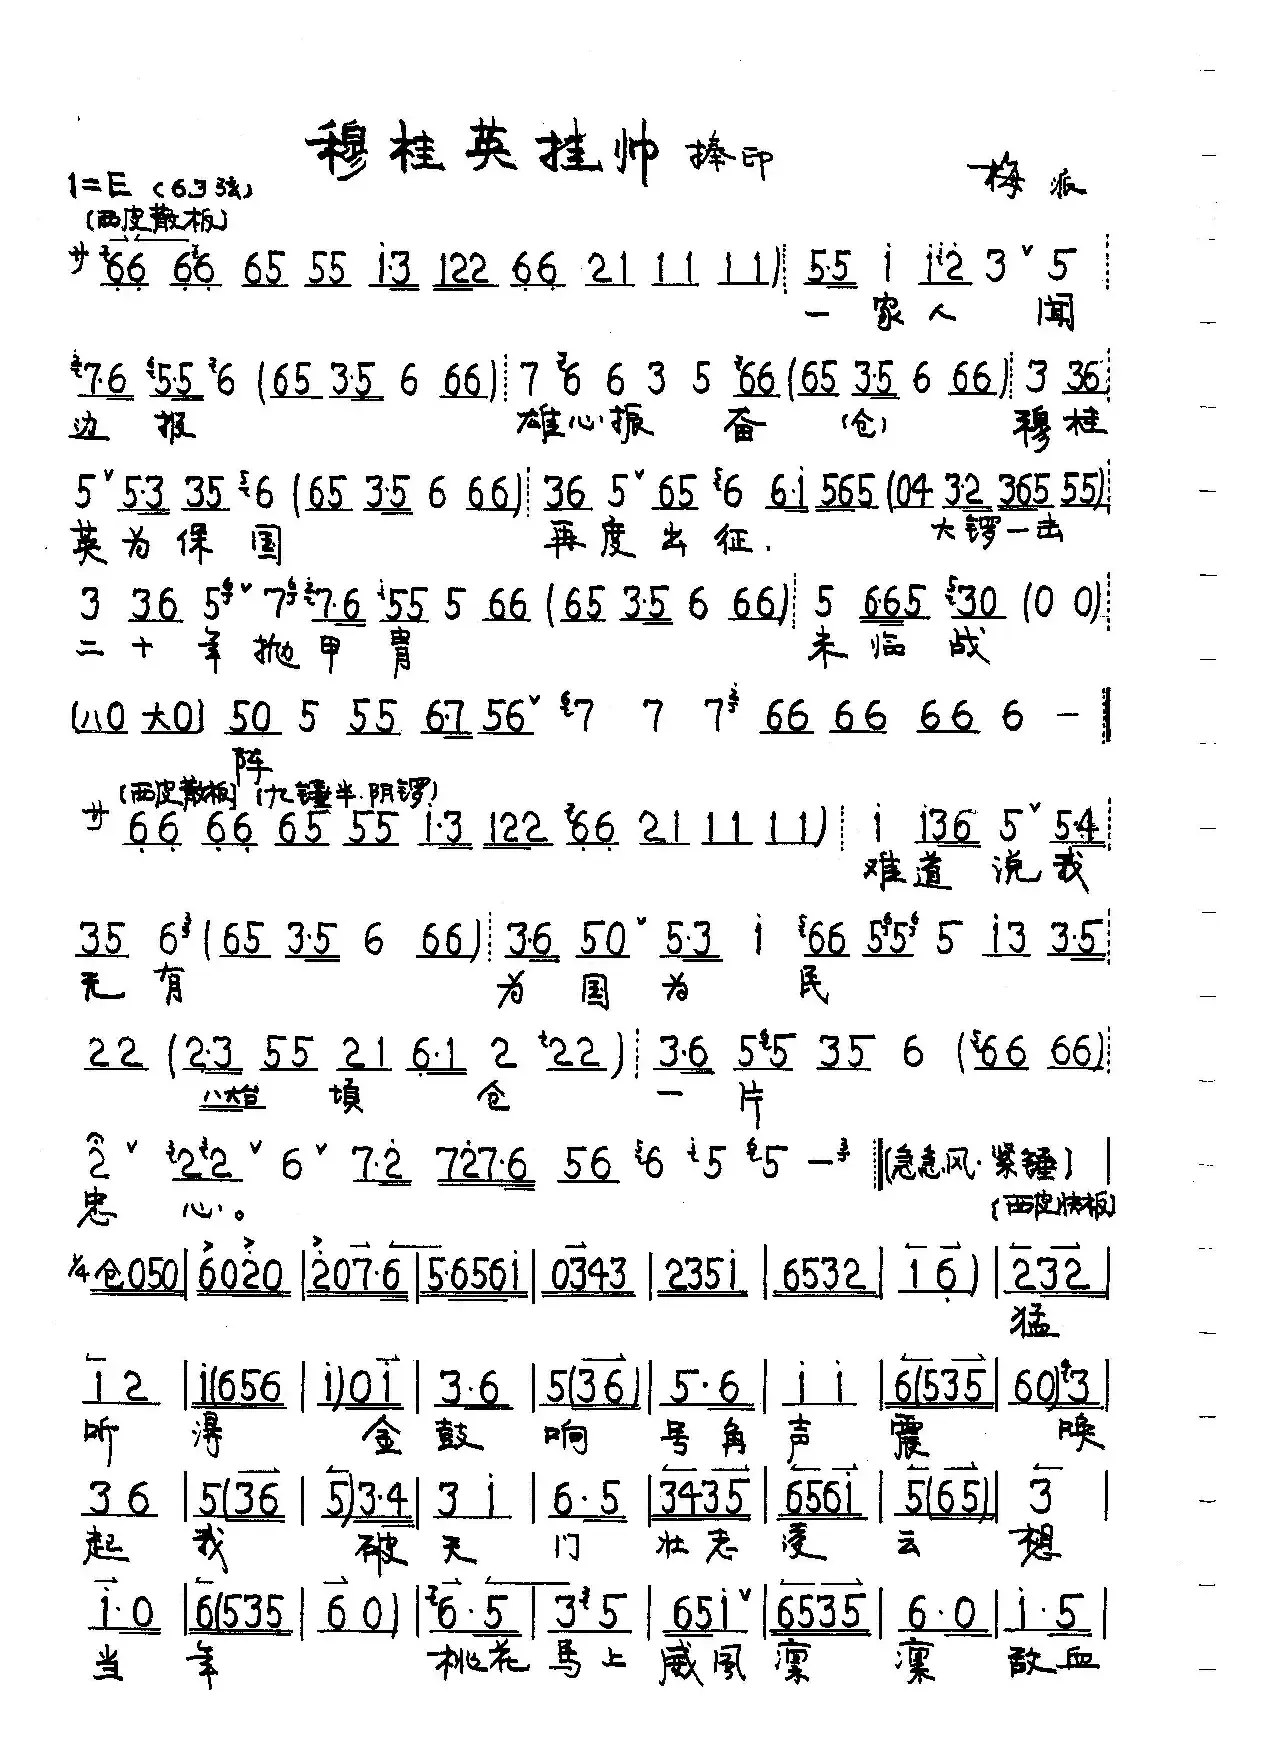 穆桂英挂帅 捧印
梅派
1=E (6 3弦)
(西皮散板)
サ 66 66 65 55 i·3 122 66 21 11 11) 5·5 i i2 3 ˅ 5
一家人 闻
7·6 5·5 6 (65 3·5 6 66) 7 6 6 3 5 66 (65 3·5 6 66) 3 36
边报 雄心振奋 (仓) 穆桂
5 ˅ 5·3 35 6 (65 3·5 6 66) 36 5 ˅ 65 6 6·i 565 (04 3·2 365 55)
英为保国 再度出征. 大锣一击
3 36 5 ˅ 7 7·6 55 5 66 (65 3·5 6 66) 5 6·65 30 (0 0)
二十年抛甲胄 未临战
(八0 大0) 50 5 55 6·7 56 ˅ 7 7 7 66 66 66 6 —
阵
(西皮散板) (九锤半·阴锣)
サ 66 66 65 55 i·3 122 66 21 11 11) i i36 5 ˅ 5·4
难道说我
35 6 (65 3·5 6 66) 3·6 50 ˅ 5·3 i 66 55 5 i3 3·5
无有 为国为民
22 (2·3 55 21 6·1 2 22) 3·6 55 35 6 (66 66)
八大台 顷仓 一片
2 ˅ 22 ˅ 6 ˅ 7·2 727·6 56 6 5 5 — (急急风·紧锤)
忠心。 (西皮快板)
1/4 仓050 | 6020 | 207·6 | 5·656i | 0343 | 235i | 6532 | 1 6) | 232 |
猛
i 2 | i(656 | i)0i | 3·6 | 5(36) | 5·6 | i i | 6(535 | 60)3 |
听得金鼓响号角声震唤
36 | 5(36 | 5)3·4 | 3 i | 6·5 | 3435 | 656i | 5(65) | 3 |
起我破天门壮志凌云想
i·0 | 6(535 | 60) | 6·5 | 3 5 | 65i ˅ | 6535 | 6·0 | i·5 |
当年 桃花马上威风凛凛敌血